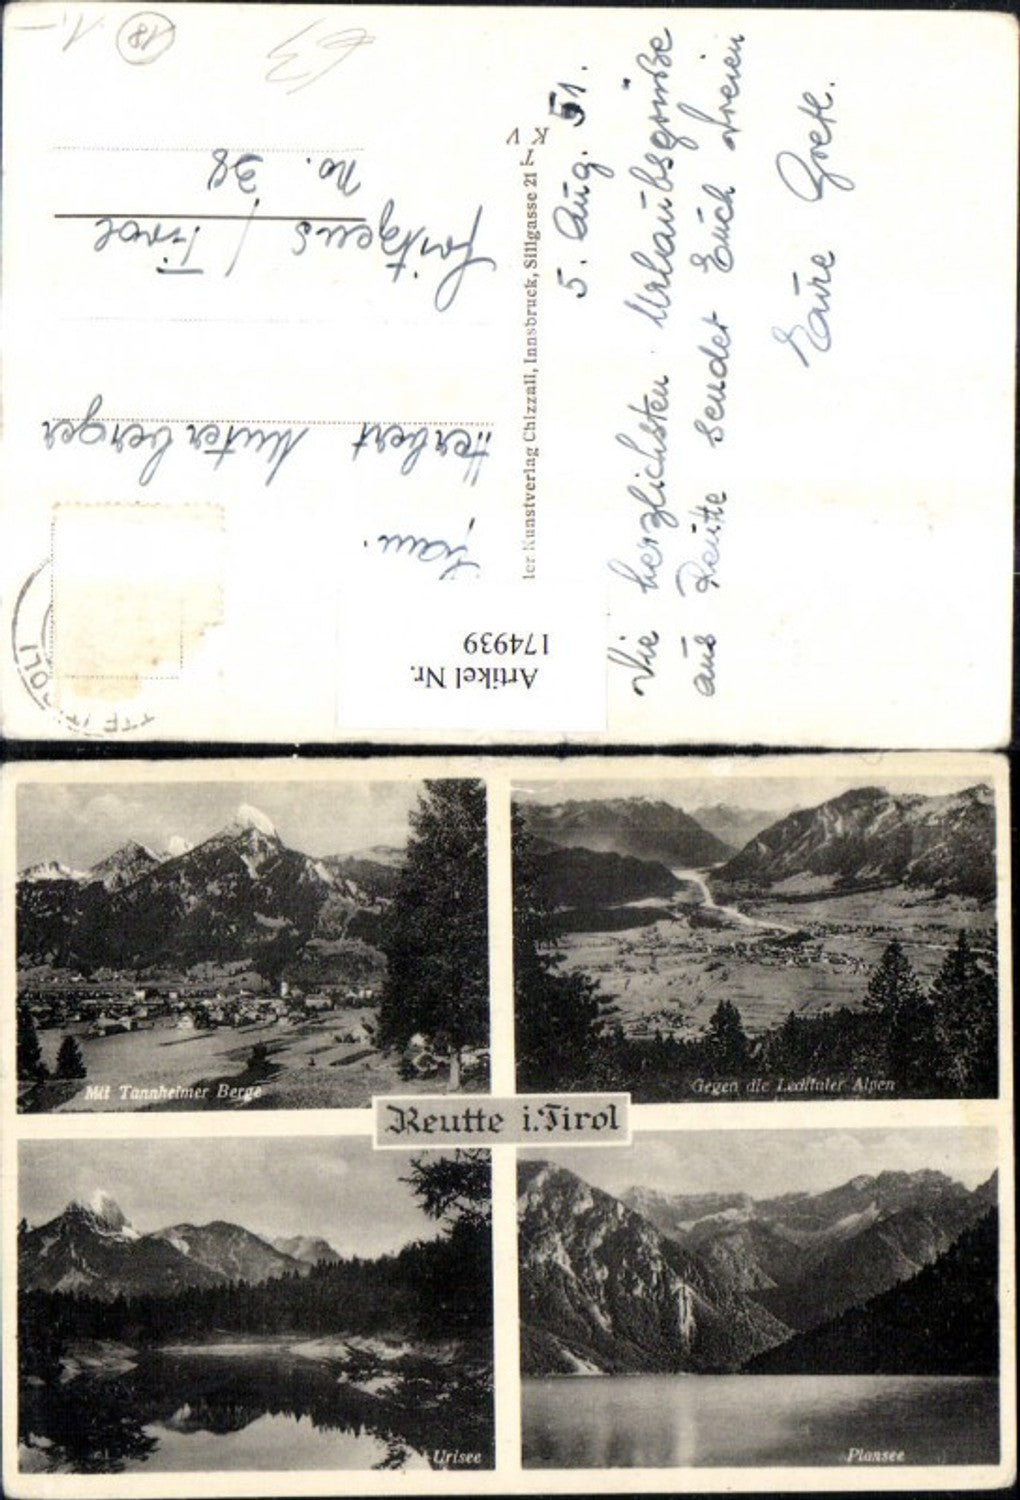 1.-
18
5. Aug. 51.
Die herzlichsten Urlaubsgrüße
aus Reutte sendet Euch dreien
Eure Gretl.
ler Kunstverlag Chizzali, Innsbruck, Sillgasse 21
K V
Fam.
Herbert Unterberger
Fritzens / Tirol
No. 38
Artikel Nr.
174939
Mit Tannheimer Berge
Gegen die Lechtaler Alpen
Reutte i. Tirol
Urisee
Plansee